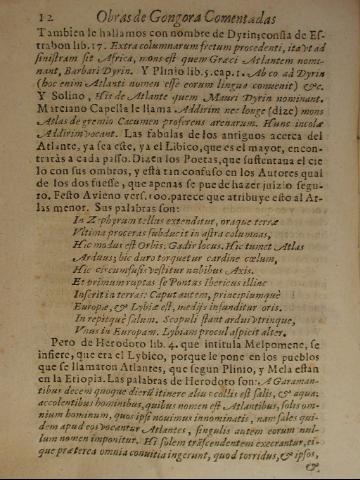 12 Obras de Gongora Comentadas
Tambien le hallamos con nombre de Dyrin; consta de Es-
trabon lib. 17. Extra columnarum fretum procedenti, ita vt ad
sinistram sit Africa, mons est quem Græci Atlantem nomi-
nant, Barbari Dyrin. Y Plinio lib. 5. cap. 1. Ab eo ad Dyrin
(hoc enim Atlanti nomen esse eorum lingua conuenit) &c.
Y Solino, Hic de Atlante quem Mauri Dyrin nominant.
Marciano Capella le llama Addirim nec longe (dize) mons
Atlas de gremio Cacumen proferens arenarum. Hunc incolæ
Addirim vocant. Las fabulas de los antiguos acerca del
Atlante, ya sea este, ya el Libico, que es el mayor, encon-
traràs a cada passo. Dizen los Poetas, que sustentaua el cie
lo con sus ombros, y està tan confuso en los Autores qual
de los dos fuesse, que apenas se puede hazer juizio segu-
ro. Festo Avieno vers. 100. parece que atribuye esto al At-
las menor. Sus palabras son:
In Zephyrum tellus extenditur, oraque terræ
Vltima proceras subducit in astra columnas,
Hic modus est Orbis: Gadir locus. Hic tumet Atlas
Arduus; hic duro torquetur cardine cœlum,
Hic circunfusis vestitur nubibus Axis.
Et primum ruptas se Pontus Ibericus illac
Inserit in terras: Caput autem, principiumquè
Europæ, & Lybiæ est, medijs infunditur oris.
In repitquè salum. Scopuli stant ardui vtrinque,
Vnus in Europam. Lybiam procul aspicit alter.
Pero de Herodoto lib. 4. que intitula Melpomene, se
infiere, que era el Lybico, porque le pone en los pueblos
que se llamaron Atlantes, que segun Plinio, y Mela están
en la Etiopia. Las palabras de Herodoto son: A Garaman-
tibus decem quoque dierũ itinere aliu collis est salis, & aqua:
accolentibus hominibus, quibus nomen est, Atlantibus, solis om-
nium hominum, quos ipsi nouimus innominatis, nam sales qui-
dem apud eos vocantur Atlantes, singulis autem eorum nul-
lum nomen imponitur. Hi solem trãscendentem execrantur, ei-
que præterea omnia conuitia ingerunt, quod torridus, & ipsos,
&